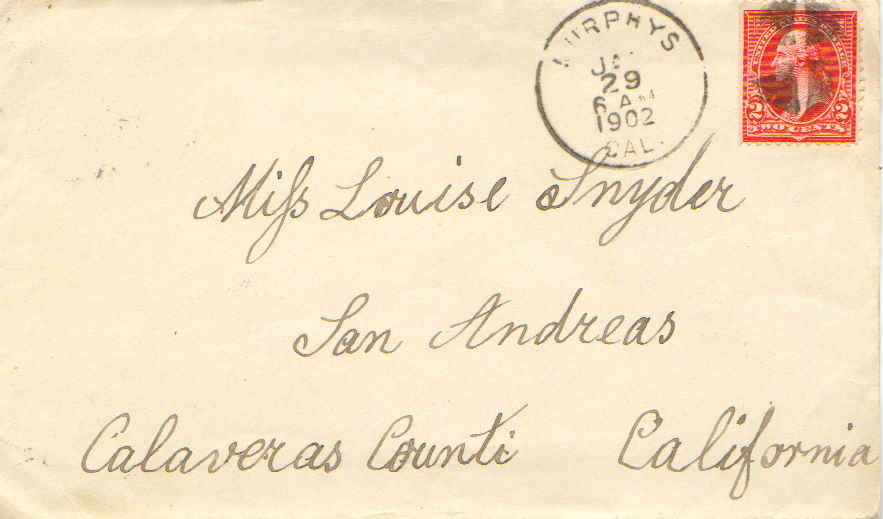 MURPHYS
JAN
29
6 AM
1902
CAL.
UNITED STATES POSTAGE
2 2
TWO CENTS
Miſs Louise Snyder
San Andreas
Calaveras Counti California